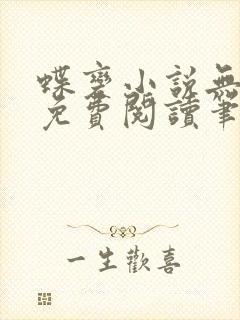 蝶變小說無
免費閱讀筆
一生歡喜